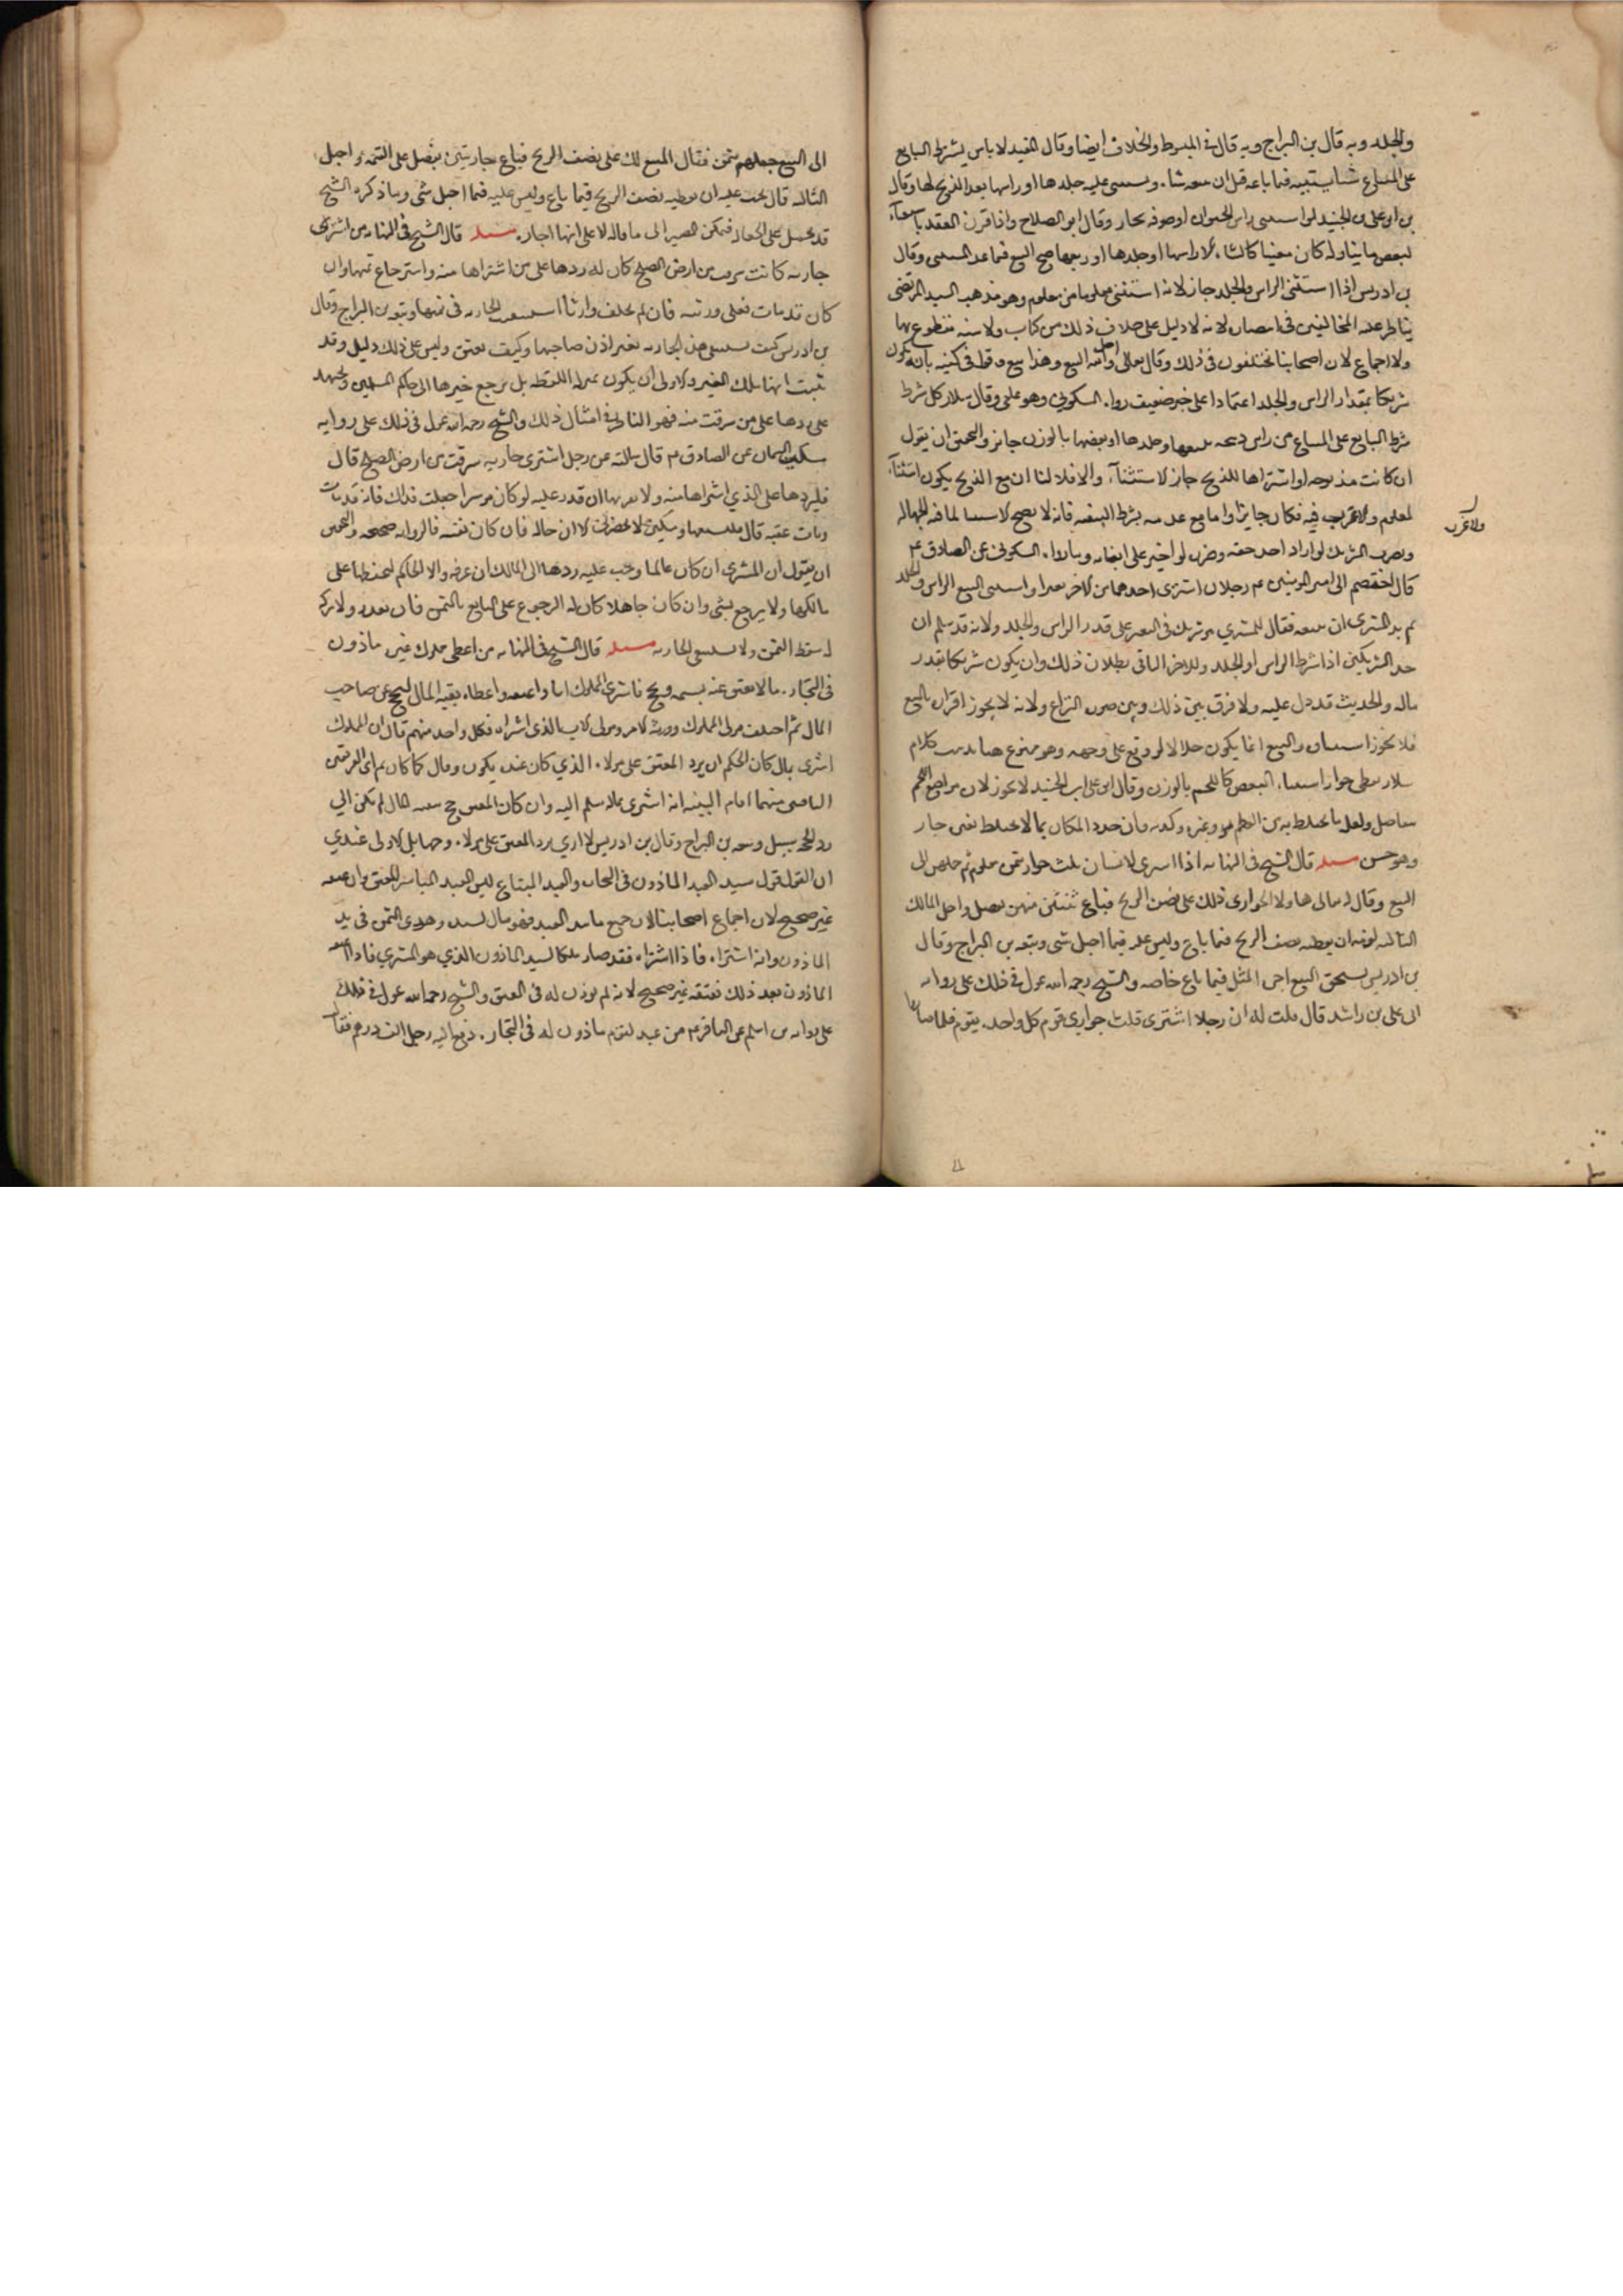 والجلد وبه قال بن البراج وبه قال في المبسوط والخلاف ايضا وقال المفيد لا باس بشرط البايع
على المبتاع شيا يستثنيه فيما باعه مثل ان معه شاه ويستثنى عليه جلدها او راسها بعد الذبح لها وقال
بن ابو على بن الجنيد لو استثنى راس الحيوان او صوفه جاز وقال ابو الصلاح واذا قرن العقد باستثناء
لبعض ما يتناوله كان معينا كالشاه الا راسها او جلدها او ربعها صح البيع فيما عدا المستثنى وقال
بن ادريس اذا استثنى الراس والجلد جاز لانه استثنى معلوما من معلوم وهو مذهب السيد المرتضى
يناظر عليه المخالفين في انتصاره لانه لا دليل على خلاف ذلك من كتاب ولا سنه مقطوع بها
ولا اجماع لان اصحابنا مختلفون في ذلك وقال تعالى واحل الله البيع وهذا بيع وقطع في كتبه بانه يكون
شريكا بمقدار الراس والجلد اعتمادا على خبر ضعيف رواه السكوني وهو عامي وقال سلار كل شرط
شرط البايع على المبتاع من راس ذبيحه يبيعها وجلدها او بعضها بالوزن جايز والتحقيق ان يقول
ان كانت مذبوحه او اشتراها للذبح جاز الاستثناء والا فلا لنا ان مع الذبح يكون استثناء
لمعلوم ولا غرر فيه فكان جايزا واما مع عدمه بشرط التبقيه فانه لا يصح الاستثناء لما فيه الجهاله
ولا غرر
وتضرر الشريك لو اراد احد حقه وضرره لو اجبر على ابقائه وما رواه السكوني عن الصادق ع
قال اختصم الى امير المومنين ع رجلان اشترى احدهما من الاخر بعيرا واستثنى البيع الراس والجلد
ثم بدا للمشترى ان يبيعه فقال للمشتري هو شريك في البعير على قدر الراس والجلد ولانه قد سلم ان
احد الشريكين اذا شرط الراس او الجلد وللاخر الباقي بطلان ذلك وان يكون شريكا بقدر
ماله والحديث قد دل عليه ولا فرق بين ذلك وبين صوره النزاع ولانه لا يجوز اقران بالبيع
فلا يجوز استثناؤه والبيع انما يكون حلالا لو وقع على وجهه وهو ممنوع هنا كلام
سلار يعطي جواز استثناء البعض كاللحم بالوزن وقال ابو على ابن الجنيد لا يجوز لان مواضع اللحم
تتفاضل ولعل ما يختلط به من العظم هو وغيره وكونه فان حدد المكان بما لا يختلط بغيره جاز
وهو حسن مسئله قال الشيخ في النهايه اذا اشترى الانسان ثلث جوار بثمن معلوم ثم حملهن الى
البيع وقال له بع لي هاولاء الجواري ولك على نصف الربح فباع ثنتين منهن بفضل واحبل المالك
الثالثه لزمه ان يعطيه نصف الربح فيما باع وليس عليه فيما احبل شى وتبعه بن البراج وقال
بن ادريس يستحق البيع اجره المثل فيما باع خاصه والشيخ رحمه الله عول في ذلك على روايه
ابى على بن راشد قال قلت له ان رجلا اشترى ثلث جواري قوم كل واحده بقيمه فلما صاروا
الى البيع جعلهم بثمن فقال للبيع لك على نصف الربح فباع جاريتين بفضل على القيمه واحبل
الثالثه قال يجب عليه ان يعطيه نصف الربح فيما باع وليس عليه فيما احبل شى وما ذكره الشيخ
قد يحمل على الجعاله فيمكن المصير الى ما قاله لا على انها اجاره مسئله قال الشيخ في النهايه من اشترى
جاريه كانت سرقت من ارض الصلح كان له ردها على من اشتراها منه واسترجاع ثمنها وان
كان قد مات فعلى ورثته فان لم يخلف وارثا استسعيت الجاريه في ثمنها وتبعه بن البراج وقال
بن ادريس كيف تستسعى هذه الجاريه بغير اذن صاحبها وكيف تعتق وليس على ذلك دليل وقد
ثبت انها ملك الغير والاولى ان يكون بمنزله اللقطه بل يرجع خبرها الى حاكم المسلمين ويجتهد
على ردها على من سرقت منه فهو الناظر في امثال ذلك والشيخ رحمه الله عمل في ذلك على روايه
مسكين السمان عن الصادق ع قال سالته عن رجل اشترى جاريه سرقت من ارض الصلح قال
فليردها على الذي اشتراها منه ولا يقربها ان قدر عليه او كان موسرا قلت جعلت فداك فانه قد مات
ومات عقبه قال فليستسعها ومسكين لا يحضرني الان حاله فان كان ثقه فالروايه صحيحه والتحقيق
ان يقول ان المشترى ان كان عالما وجب عليه ردها الى المالك ان عرفه والا الحاكم ليحفظها على
مالكها ولا يرجع بشى وان كان جاهلا كان له الرجوع على البايع بالثمن فان تعذر ولا تركه
له سقط الثمن ولا تستسعى الجاريه مسئله قال الشيخ في النهايه من اعطى مملوك غيره ماذون
في التجاره مالا ليعتق عنه نسمه ويحج فاشترى المملوك اباه واعتقه واعطاه بقيه المال ليحج عن صاحب
المال ثم اختلف مولى المملوك وورثه الامر ومولى الاب الذى اشتراه فكل واحد منهم قال ان المملوك
اشترى بمالى كان الحكم ان يرد المعتق على مولاه الذي كان عنده يكون رقا له كما كان ثم اى الفريقين
الباقيين منهما اقام البينه انه اشترى بماله سلم اليه وان كان المعتق حج ببقيه المال لم يكن الى
رد الحجه سبيل وتبعه بن البراج وقال بن ادريس لا اري برد المعتق على مولاه وجها بل الاولى عندي
ان القول قول سيد العبد الماذون في التجاره والعبد المبتاع لسيد العبد المباشر للعتق وان عتقه
غير صحيح لان اجماع اصحابنا ان جميع ما بيد العبد فهو مال لسيده وهذى الثمن في يد
الماذون وانه اشتراه فاذا اشتراه فقد صار ملكا لسيد الماذون الذي هو المشتري فاذا اعتقه
الماذون بعد ذلك فعتقه غير صحيح لانه لم يوذن له في العتق والشيخ رحمه الله عول في ذلك
على روايه بن اشيم عن الباقر ع عن عبد لقوم ماذون له في التجاره دفع اليه رجل الف درهم فقال